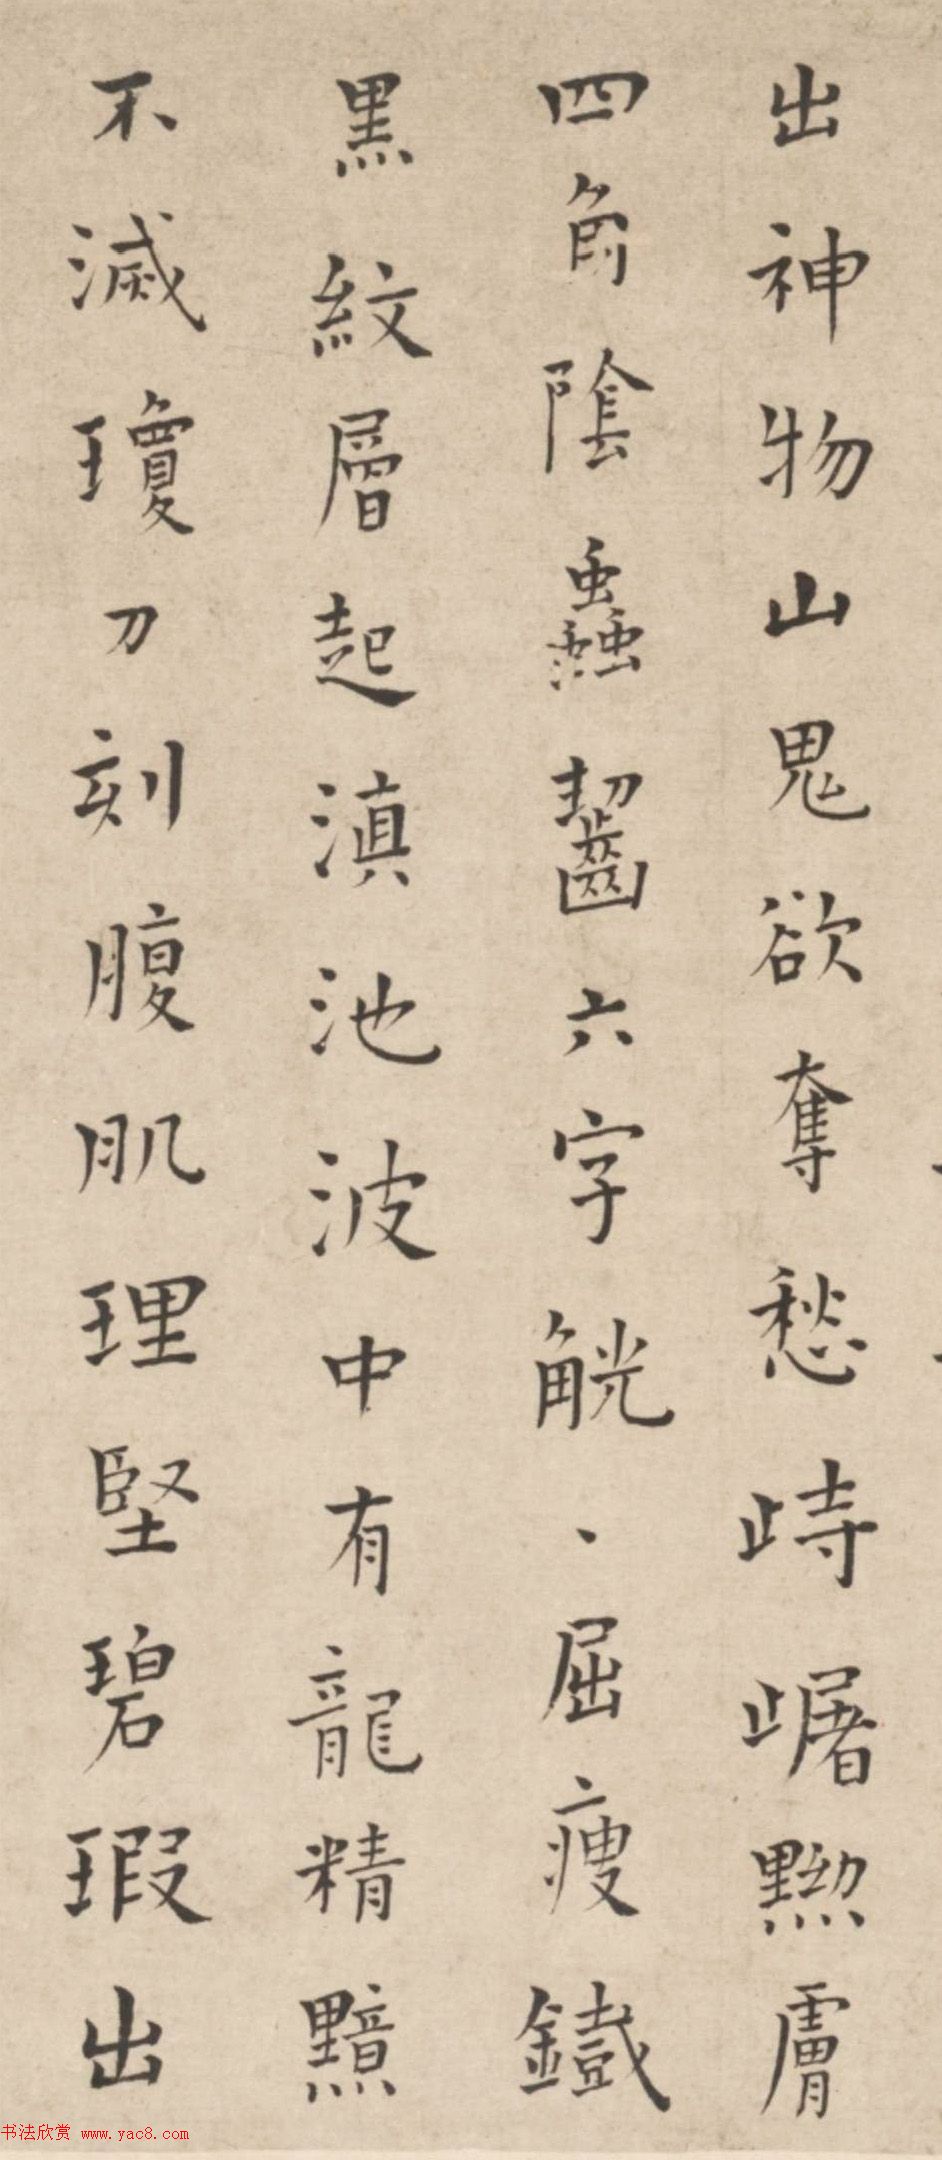 出神物山鬼欲奪愁峙崌黝膚
四角陰蟲齧六字觥、屈瘦鐵
黑紋層起滇池波中有龍精黯
不滅瓊刀刻腹肌理堅碧瑕出
书法欣赏 www.yac8.com